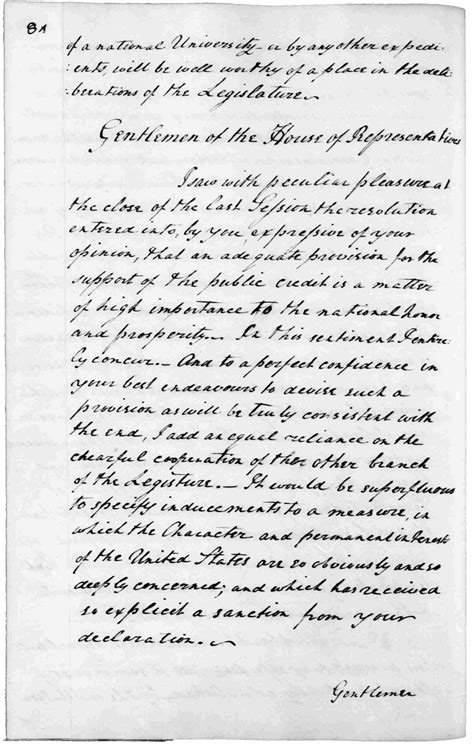 8A
of a national University – or by any other expedi-
:ents, will be well worthy of a place in the deli-
:berations of the Legislature.
Gentlemen of the House of Representatives
I saw with peculiar pleasure at
the close of the last Session, the resolution
entered into, by you, expressive of your
opinion, that an adequate provision for the
support of the public credit is a matter
of high importance to the national honor
and prosperity. – In this sentiment I entire-
ly concur. – And to a perfect confidence in
your best endeavours to devise such a
provision as will be truly consistent with
the end, I add an equal reliance on the
chearful cooperation of the other branch
of the Legisture. – It would be superfluous
to specify inducements to a measure, in
which the Character and permanent interests
of the United States are so obviously and so
deeply concerned; and which has received
so explicit a sanction from your
declaration. –
Gentlemen